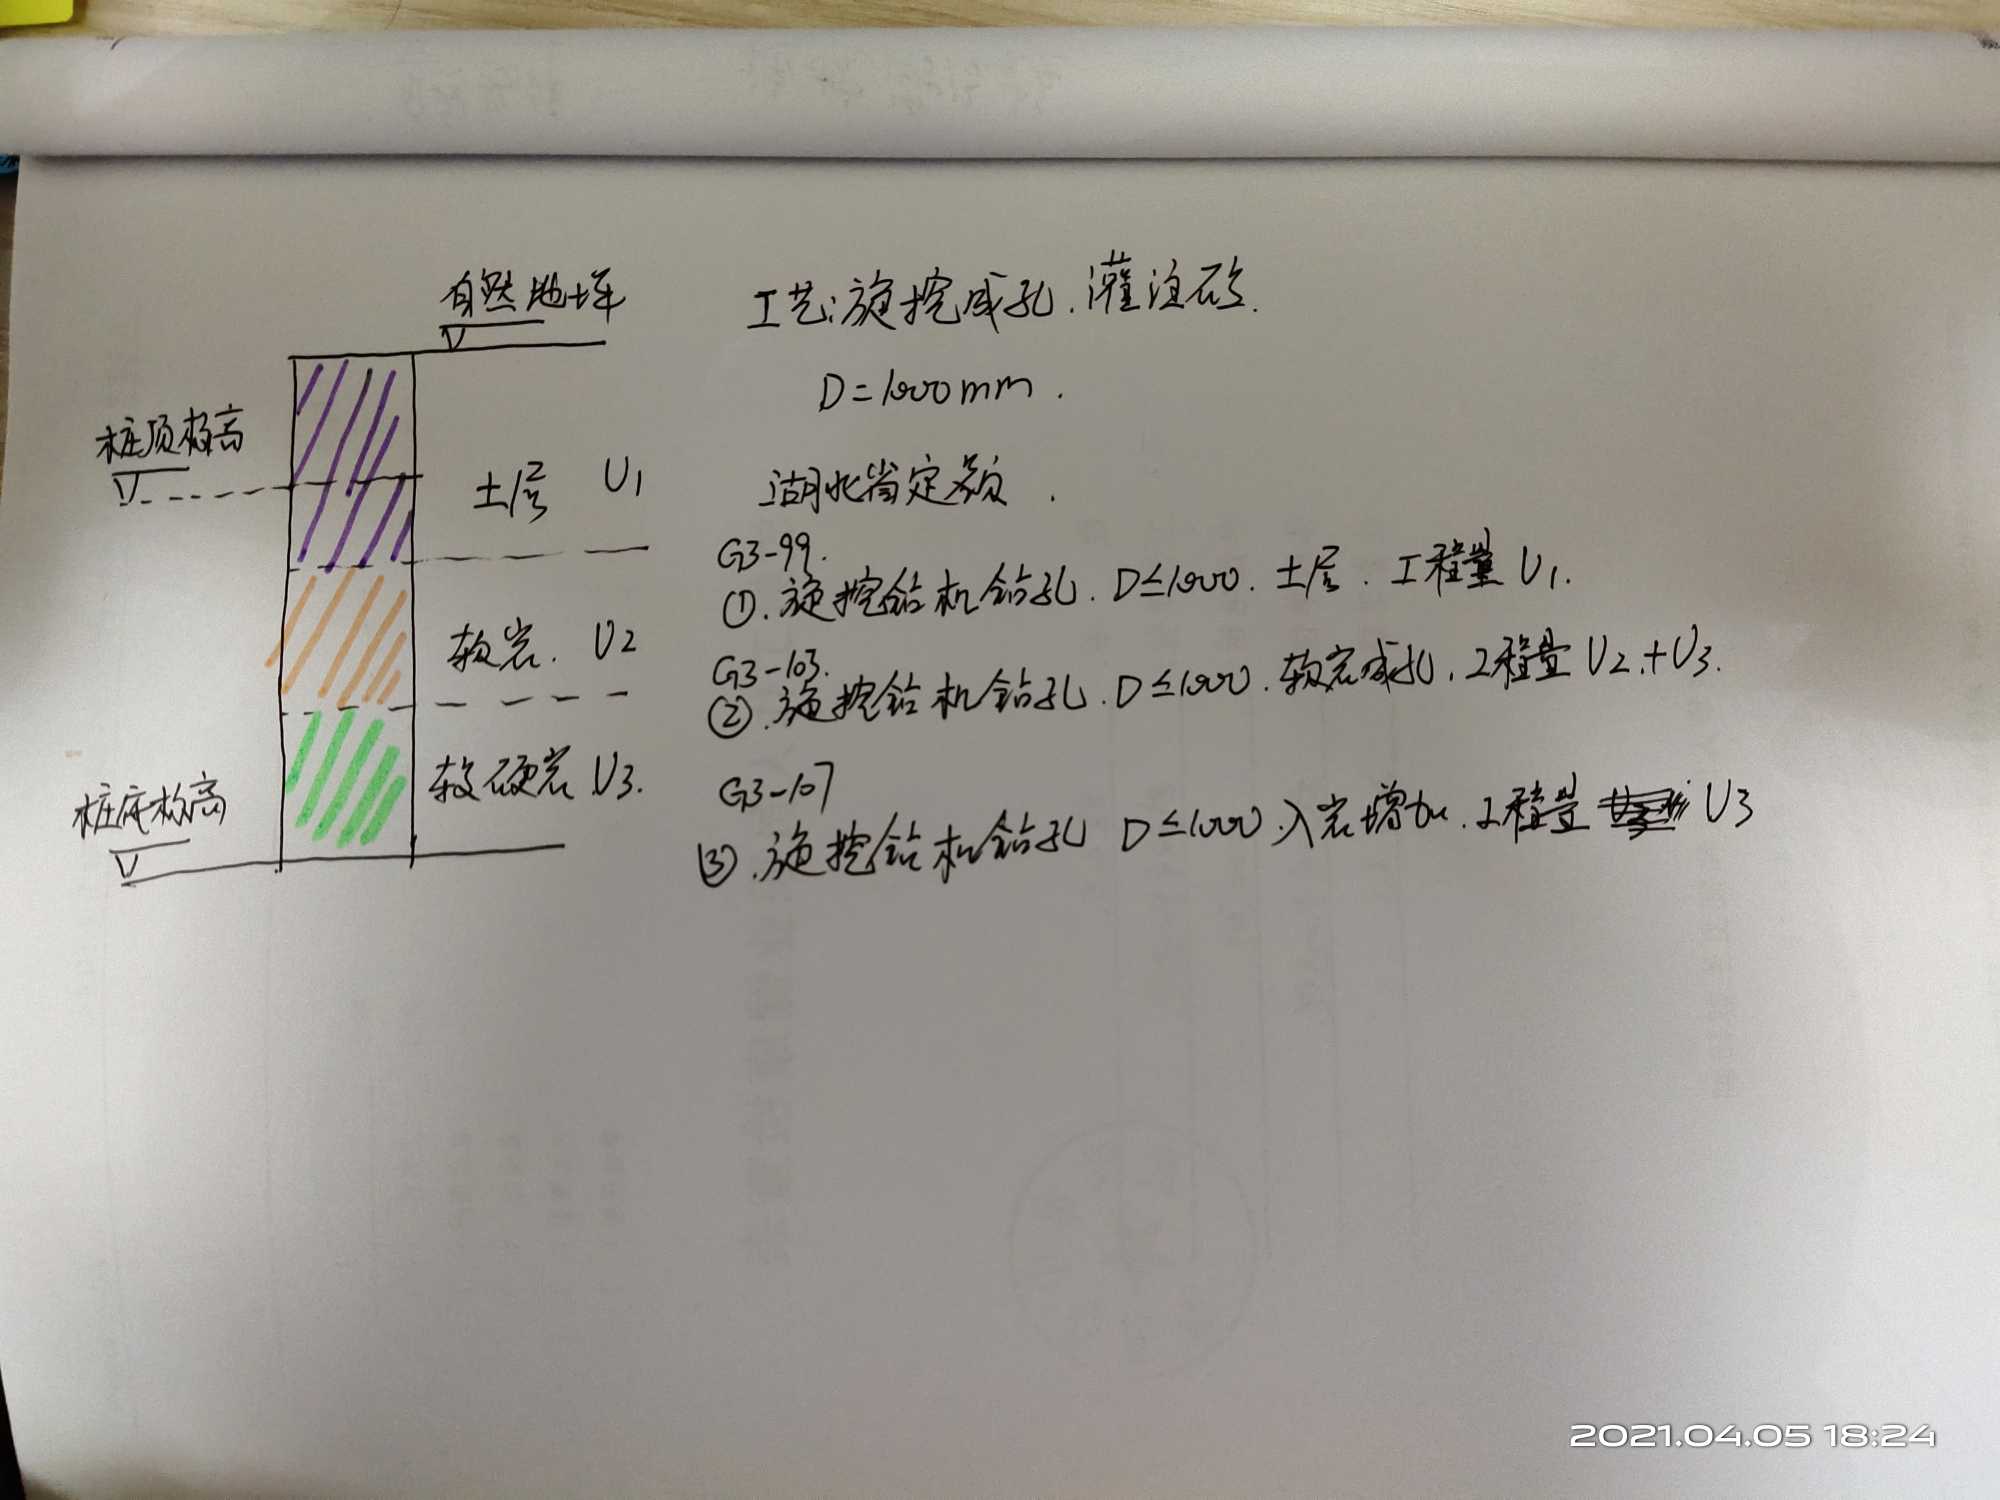 自然地坪
工艺:旋挖成孔.灌注砼.
D=1000mm.
桩顶标高
土层 V1
湖北省定额.
G3-99.
①.旋挖钻机钻孔.D≤1000.土层.工程量V1.
软岩.V2
G3-103.
②.旋挖钻机钻孔.D≤1000.软岩成孔.工程量V2+V3.
较硬岩V3.
桩底标高
G3-107
③.旋挖钻机钻孔 D≤1000.入岩增加.工程量 V3
2021.04.05 18:24